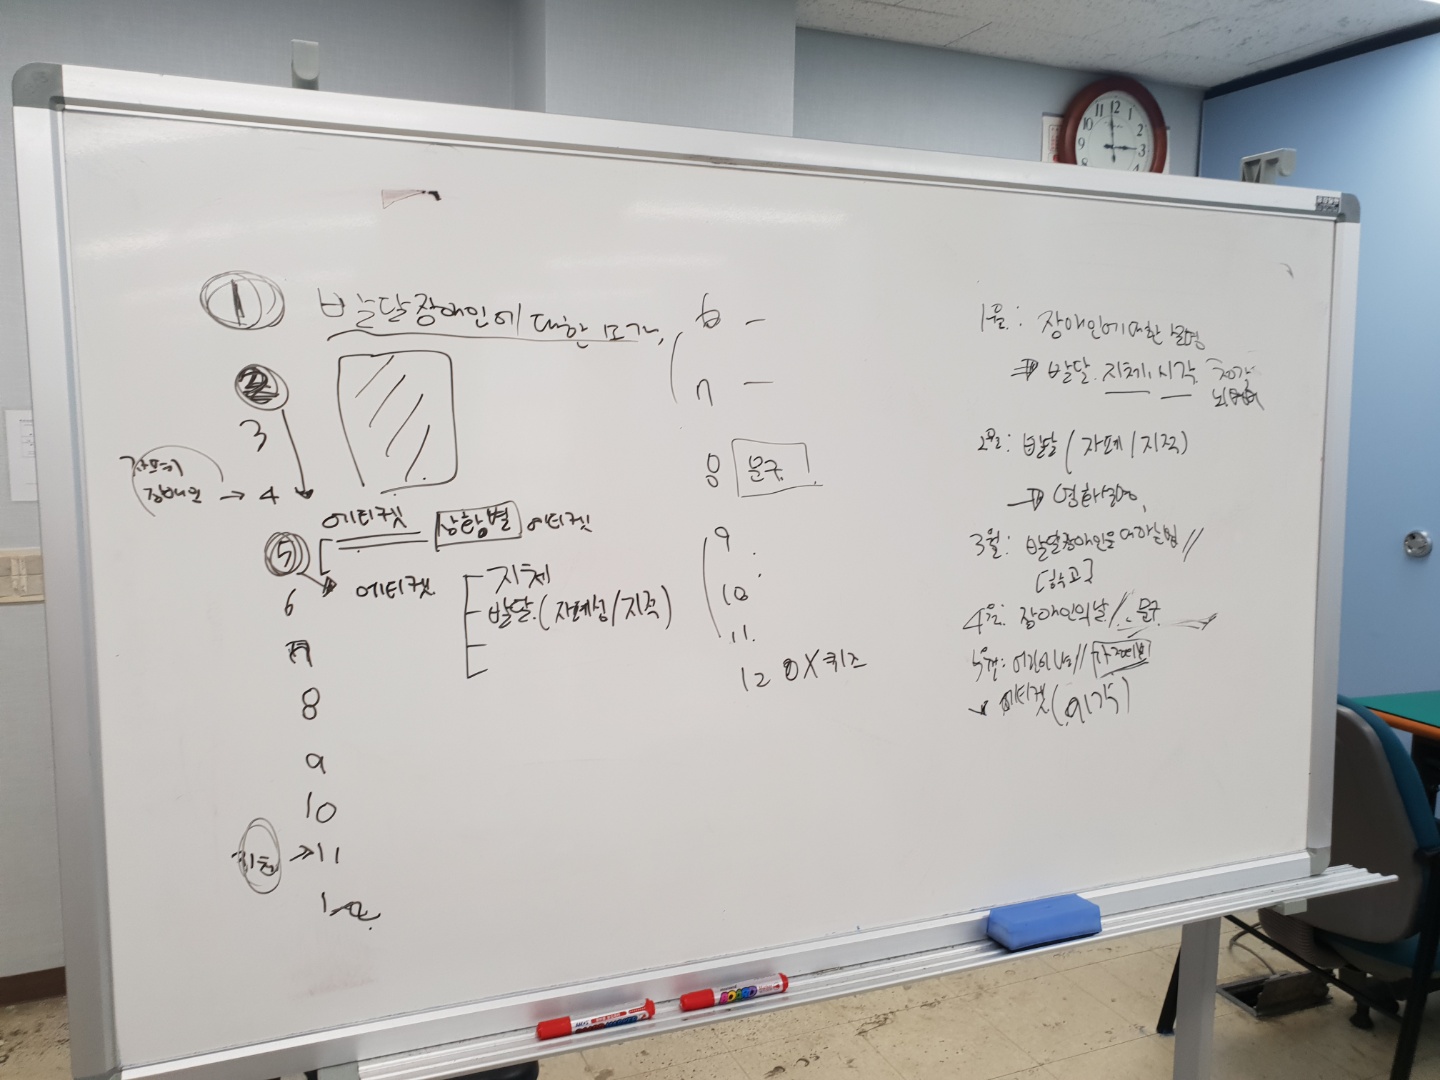 1 발달장애인에 대한
2
3
장애인 → 4
에티켓 상황별 에티켓
5
에티켓 지체
발달.(자폐성/지적)
6
7
8
9
10
→ 11
12
6 –
7 –
8 문구
9.
10
11.
12 OX퀴즈
1월: 장애인에 대한 설명
⇒ 발달. 지체, 시각, 청각
2월: 발달 (자폐/지적)
3월: 발달장애인을 대하는 법//
4월: 장애인의 날/ 문구
5월: 어린이날//
에티켓
12
11
10
9
8
7
6
5
4
3
2
1